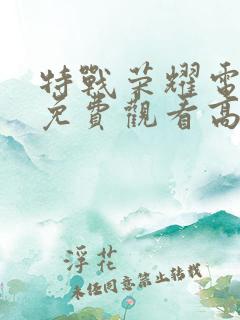 特戰荣耀電
免費觀看高
浮花
未经同意禁止转载